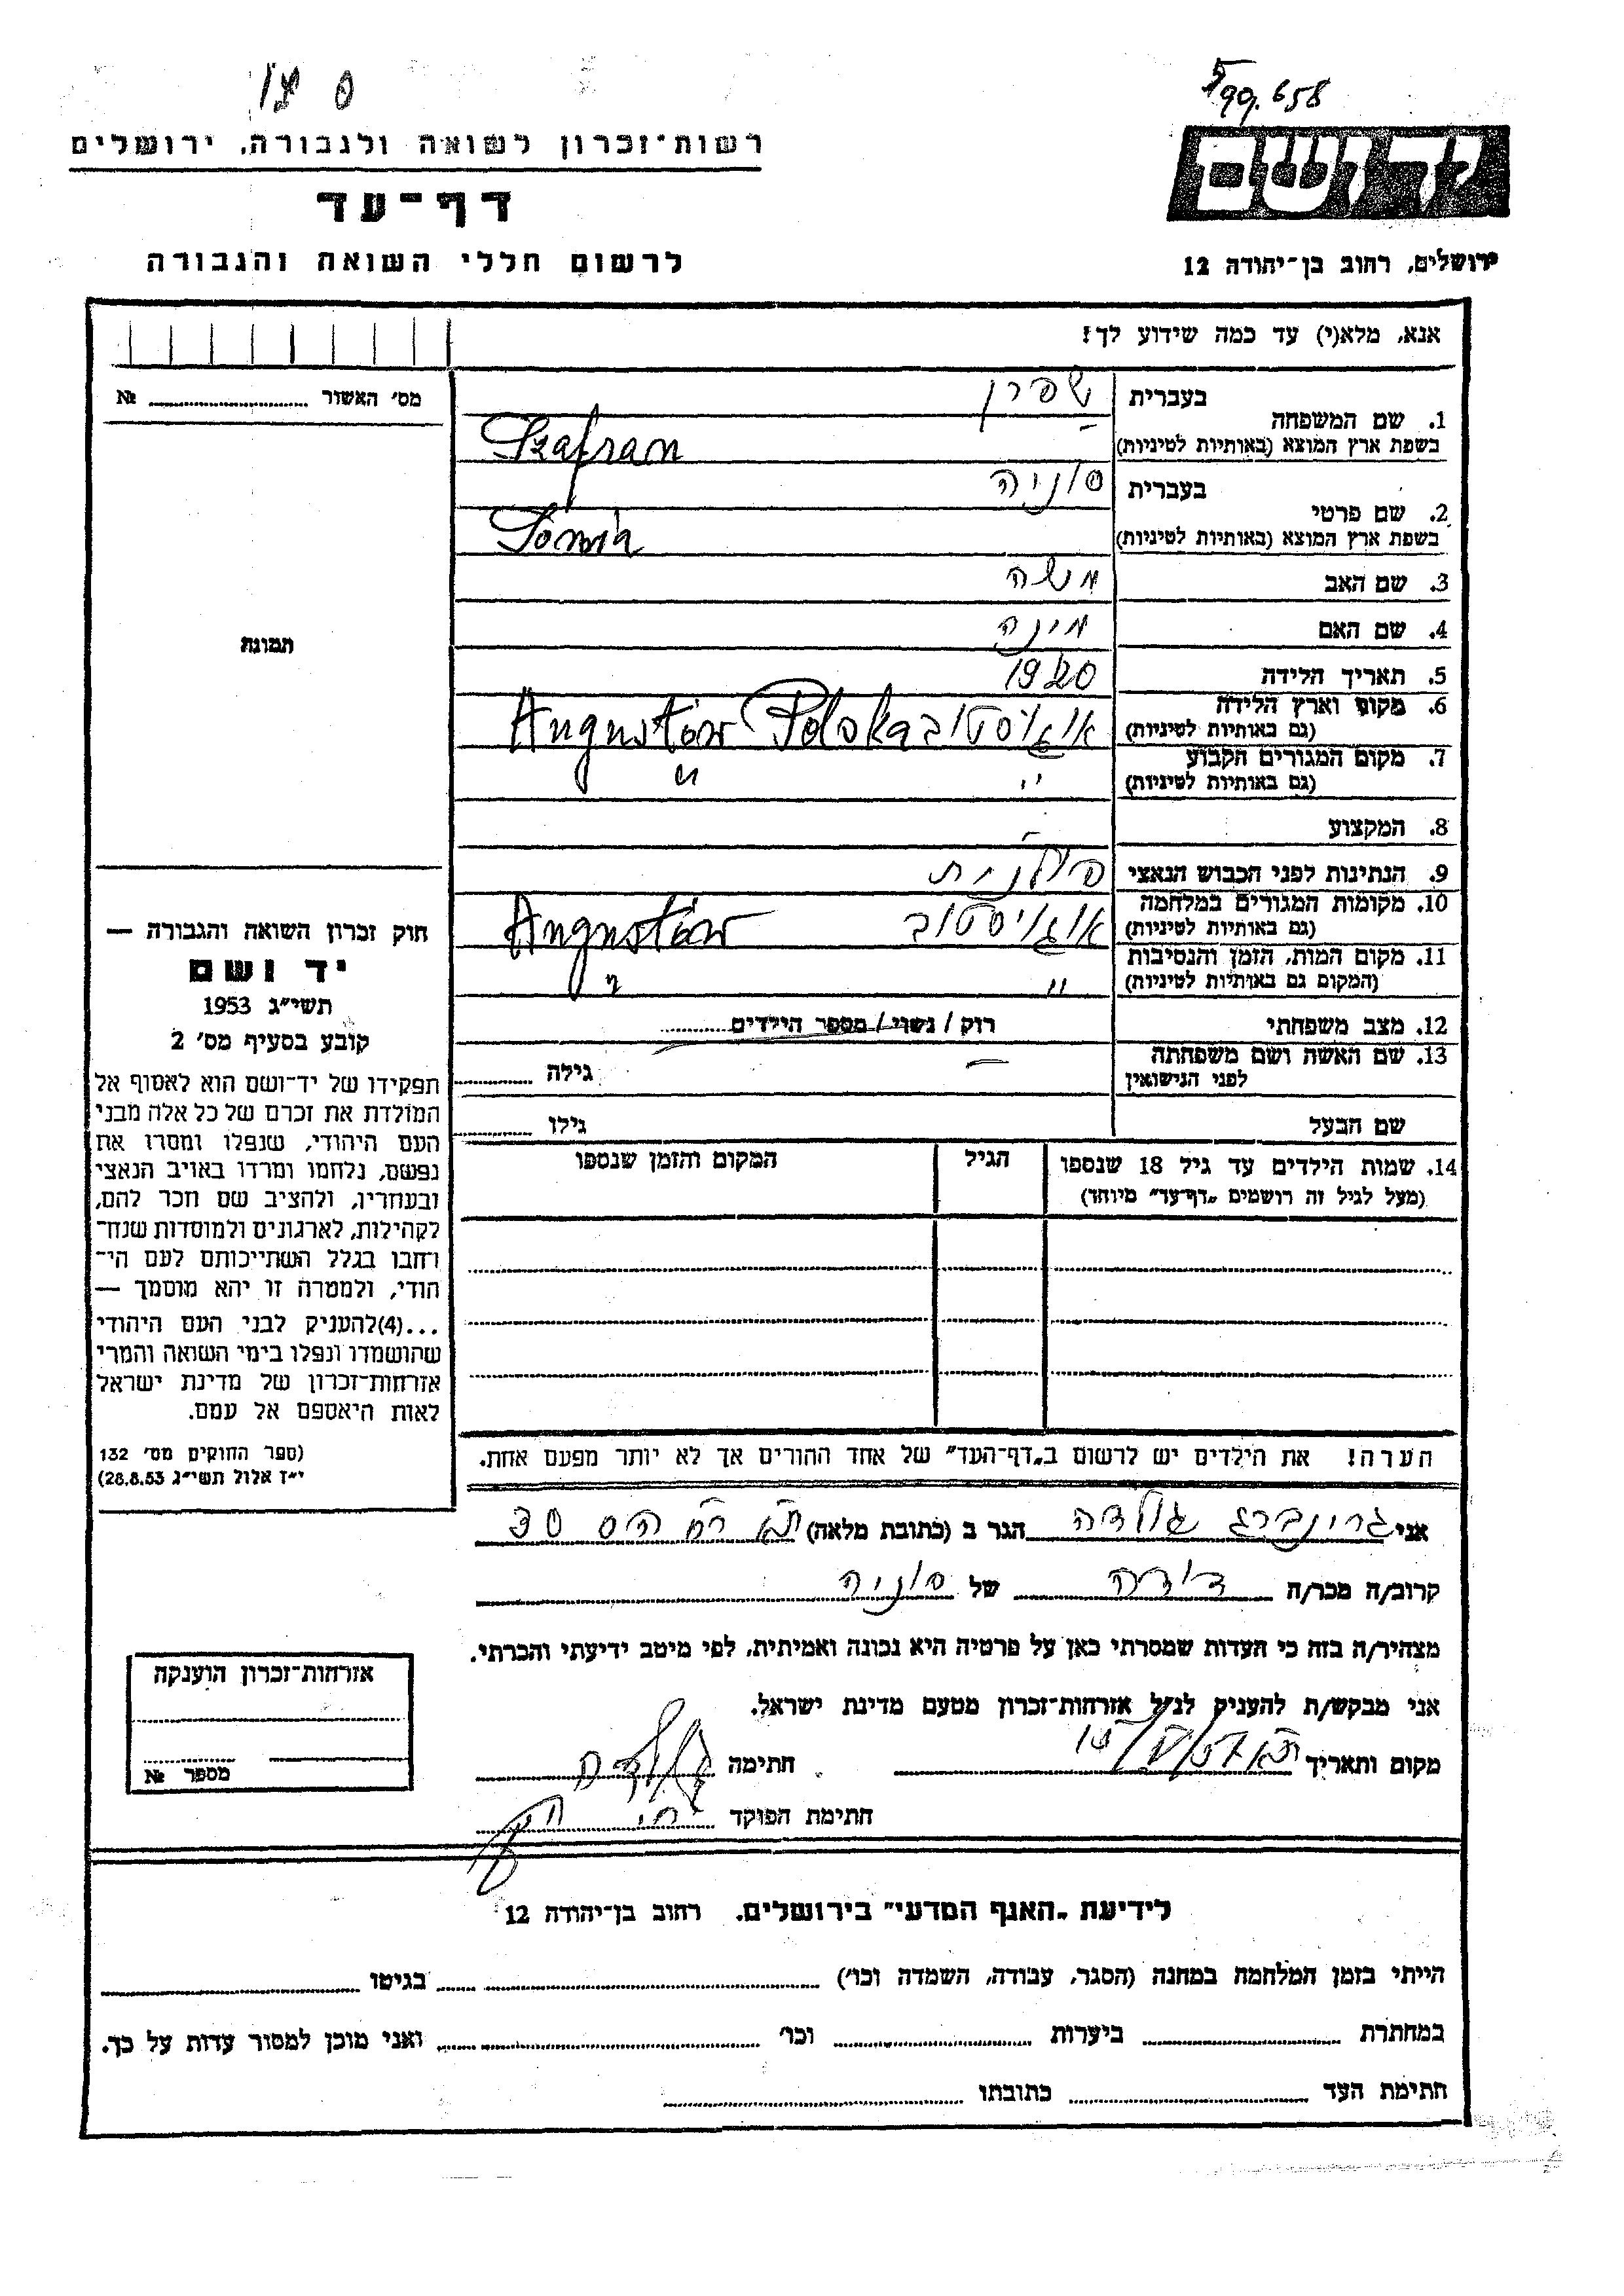 ס
רשות־זכרון לשואה ולגבורה, ירושלים
דף־עד
לרשום חללי השואה והגבורה
ירושלים, רחוב בן־יהודה 12
אנא, מלא(י) עד כמה שידוע לך!
מס׳ האשור ........ №
תמונת
1. שם המשפחה
בעברית שפרן
בשפת ארץ המוצא (באותיות לטיניות) Szafran
2. שם פרטי
בעברית סוניה
בשפת ארץ המוצא (באותיות לטיניות) Sonia
3. שם האב משה
4. שם האם מינה
5. תאריך הלידה 1920
6. מקום וארץ הלידה (גם באותיות לטיניות) אוגויסטוב Augustów Polska
7. מקום המגורים הקבוע (גם באותיות לטיניות) " "
8. המקצוע -
9. הנתינות לפני הכבוש הנאצי פולנית
10. מקומות המגורים במלחמה (גם באותיות לטיניות) אוגויסטוב Augustów
11. מקום המות, הזמן והנסיבות (המקום גם באותיות לטיניות) " "
12. מצב משפחתי רוק / נשוי / מספר הילדים ........
13. שם האשה ושם משפחתה לפני הנישואין — גילה ........
שם הבעל גילו ........
14. שמות הילדים עד גיל 18 שנספו (מעל לגיל זה רושמים „דף־עד” מיוחד)
הגיל
המקום והזמן שנספו
הערה! את הילדים יש לרשום ב„דף־העד” של אחד ההורים אך לא יותר מפעם אחת.
חוק זכרון השואה והגבורה —
יד ושם
תשי״ג 1953
קובע בסעיף מס׳ 2
תפקידו של יד־ושם הוא לאסוף אל
המולדת את זכרם של כל אלה מבני
העם היהודי, שנפלו ומסרו את
נפשם, נלחמו ומרדו באויב הנאצי
ובעוזריו, ולהציב שם וזכר להם,
לקהילות, לארגונים ולמוסדות שנח־
רחבו בגלל השתייכותם לעם הי־
הודי, ולמטרה זו יהא מוסמך —
...(4) להעניק לבני העם היהודי
שהושמדו ונפלו בימי השואה והמרי
אזרחות־זכרון של מדינת ישראל
לאות היאספם אל עמם.
(ספר החוקים מס׳ 132
י״ז אלול תשי״ג 28.8.53)
אני גרינברג גולדה הגר ב (כתובת מלאה) ת״א 30
קרוב/ה מכר/ה דודה של סוניה
מצהיר/ה בזה כי העדות שמסרתי כאן על פרטיה היא נכונה ואמיתית, לפי מיטב ידיעתי והכרתי.
אני מבקש/ת להעניק לנ״ל אזרחות־זכרון מטעם מדינת ישראל.
מקום ותאריך ת״א חתימה
חתימת הפוקד
אזרחות־זכרון הוענקה
מספר №
לידיעת „האגף המדעי” בירושלים, רחוב בן־יהודה 12
הייתי בזמן המלחמה במחנה (הסגר, עבודה, השמדה וכו׳) ........ בגיטו ........
במחתרת ........ ביערות ........ וכו׳ ........ ואני מוכן למסור עדות על כך.
חתימת העד ........ כתובתו ........